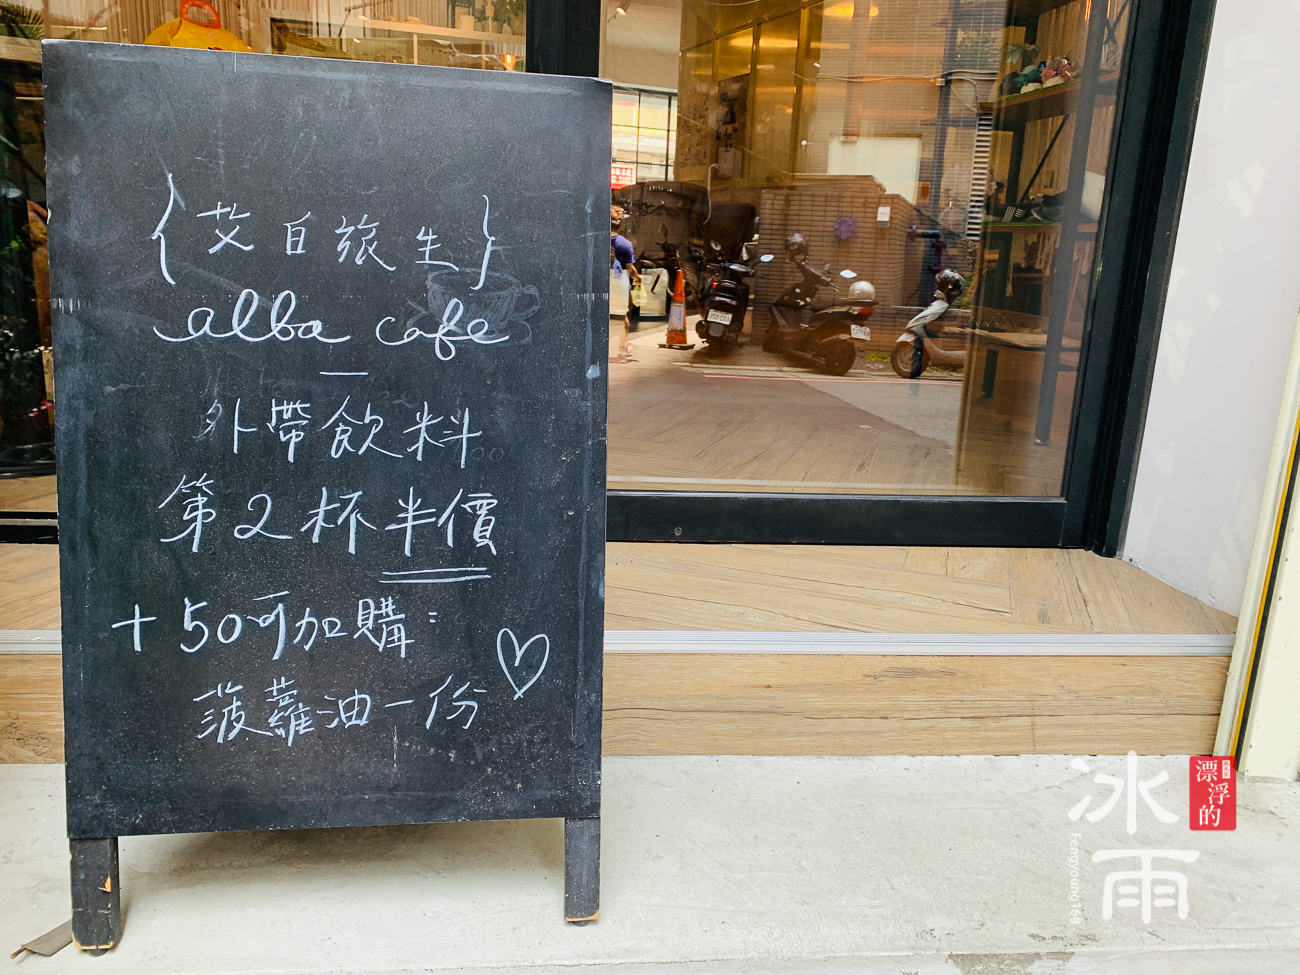 {艾白旅生}
alba cafe
外帶飲料
第2杯半價
+50可加購:
菠蘿油一份
漂浮的
冰雨
Fengyoung168